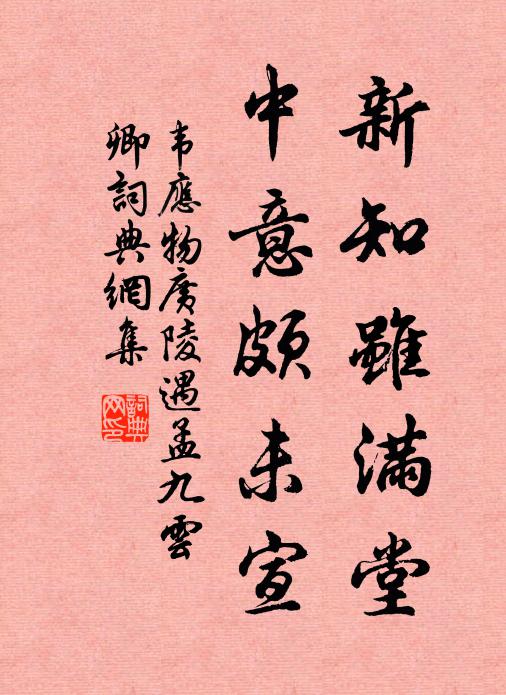 新知雖滿堂
中意頗未宣
韦應物廣陵遇孟九雲
卿詞典網集
詞典
网印